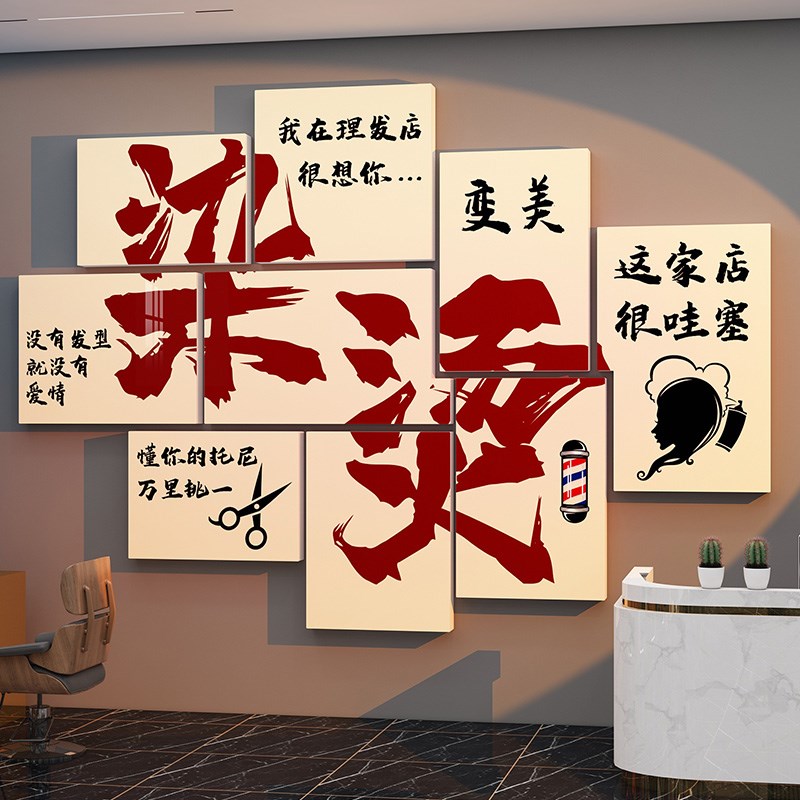 我在理发店
很想你...
变美
这家店
很哇塞
染烫
没有发型
就没有
爱情
懂你的托尼
万里挑一